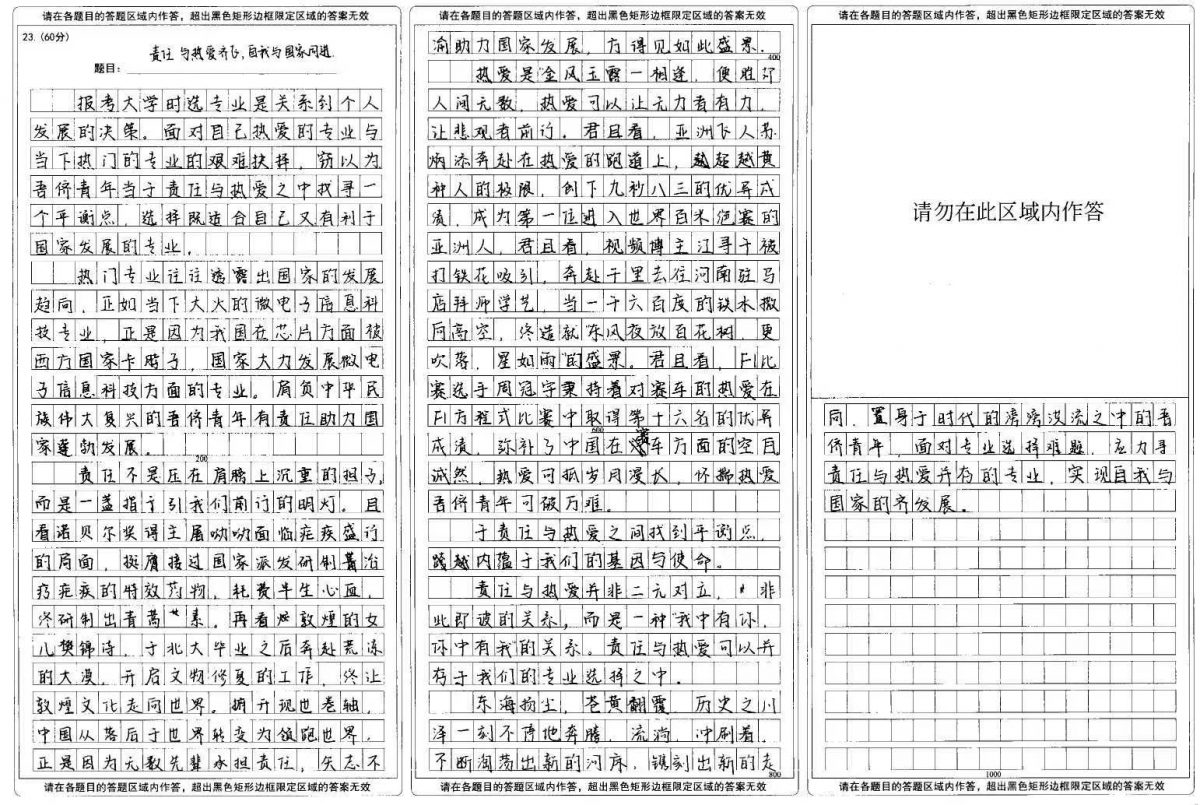 请在各题目的答题区域内作答，超出黑色矩形边框限定区域的答案无效
23.（60分）
题目：责任与热爱齐飞，自我与国家同道
报考大学时选专业是关系到个人
发展的决策。面对自己热爱的专业与
当下热门的专业的艰难抉择，窃以为
吾侪青年当于责任与热爱之中找寻一
个平衡点，选择既适合自己又有利于
国家发展的专业。
热门专业往往透露出国家的发展
趋向，正如当下大火的微电子信息科
技专业，正是因为我国在芯片方面被
西方国家卡脖子，国家大力发展微电
子信息科技方面的专业。肩负中华民
族伟大复兴的吾侪青年有责任助力国
家蓬勃发展。
200
责任不是压在肩膀上沉重的担子，
而是一盏指引我们前行的明灯。且
看诺贝尔奖得主屠呦呦面临疟疾盛行
的局面，挺膺接过国家派发研制治
疗疟疾的特效药物，耗费半生心血，
终研制出青蒿素。再看敦煌的女
儿樊锦诗，于北大毕业之后奔赴荒凉
的大漠，开启文物修复的工作，终让
敦煌文化走向世界。捎开现世卷轴，
中国从落后于世界转变为领跑世界，
正是因为无数先辈承担责任，矢志不
请在各题目的答题区域内作答，超出黑色矩形边框限定区域的答案无效
请在各题目的答题区域内作答，超出黑色矩形边框限定区域的答案无效
渝助力国家发展，方得见如此盛景。
400
热爱是金风玉露一相逢，便胜却
人间无数，热爱可以让无力者有力，
让悲观者前行。君且看，亚洲飞人苏
炳添奔赴在热爱的跑道上，超越黄
种人的极限，创下九秒八三的优异成
绩，成为第一位进入世界百米绝赛的
亚洲人，君且看，视频博主江寻千被
打铁花吸引，奔赴千里去往河南驻马
店拜师学艺，当一千六百度的铁水撒
向高空，终造就“东风夜放百花树，更
吹落，星如雨”的盛景。君且看，F1比
赛选手周冠宇秉持着对赛车的热爱在
F1方程式比赛中取得第十六名的优异
600
成绩，弥补了中国在赛车方面的空白
诚然，热爱可抵岁月漫长，怀揣热爱
吾侪青年可破万难。
于责任与热爱之间找到平衡点，
跨越内蕴于我们的基因与使命。
责任与热爱并非二元对立，非
此即彼的关系，而是一种“我中有你，
你中有我”的关系。责任与热爱可以并
存于我们的专业选择之中。
东海扬尘，苍黄翻覆，历史之川
泽一刻不停地奔腾，流淌，冲刷着，
不断淘荡出新的河床，镌刻出新的走
800
请在各题目的答题区域内作答，超出黑色矩形边框限定区域的答案无效
请在各题目的答题区域内作答，超出黑色矩形边框限定区域的答案无效
请勿在此区域内作答
向，置身于时代的滂滂没流之中的吾
侪青年，面对专业选择难题，应力寻
责任与热爱并存的专业，实现自我与
国家的齐发展。
1000
请在各题目的答题区域内作答，超出黑色矩形边框限定区域的答案无效